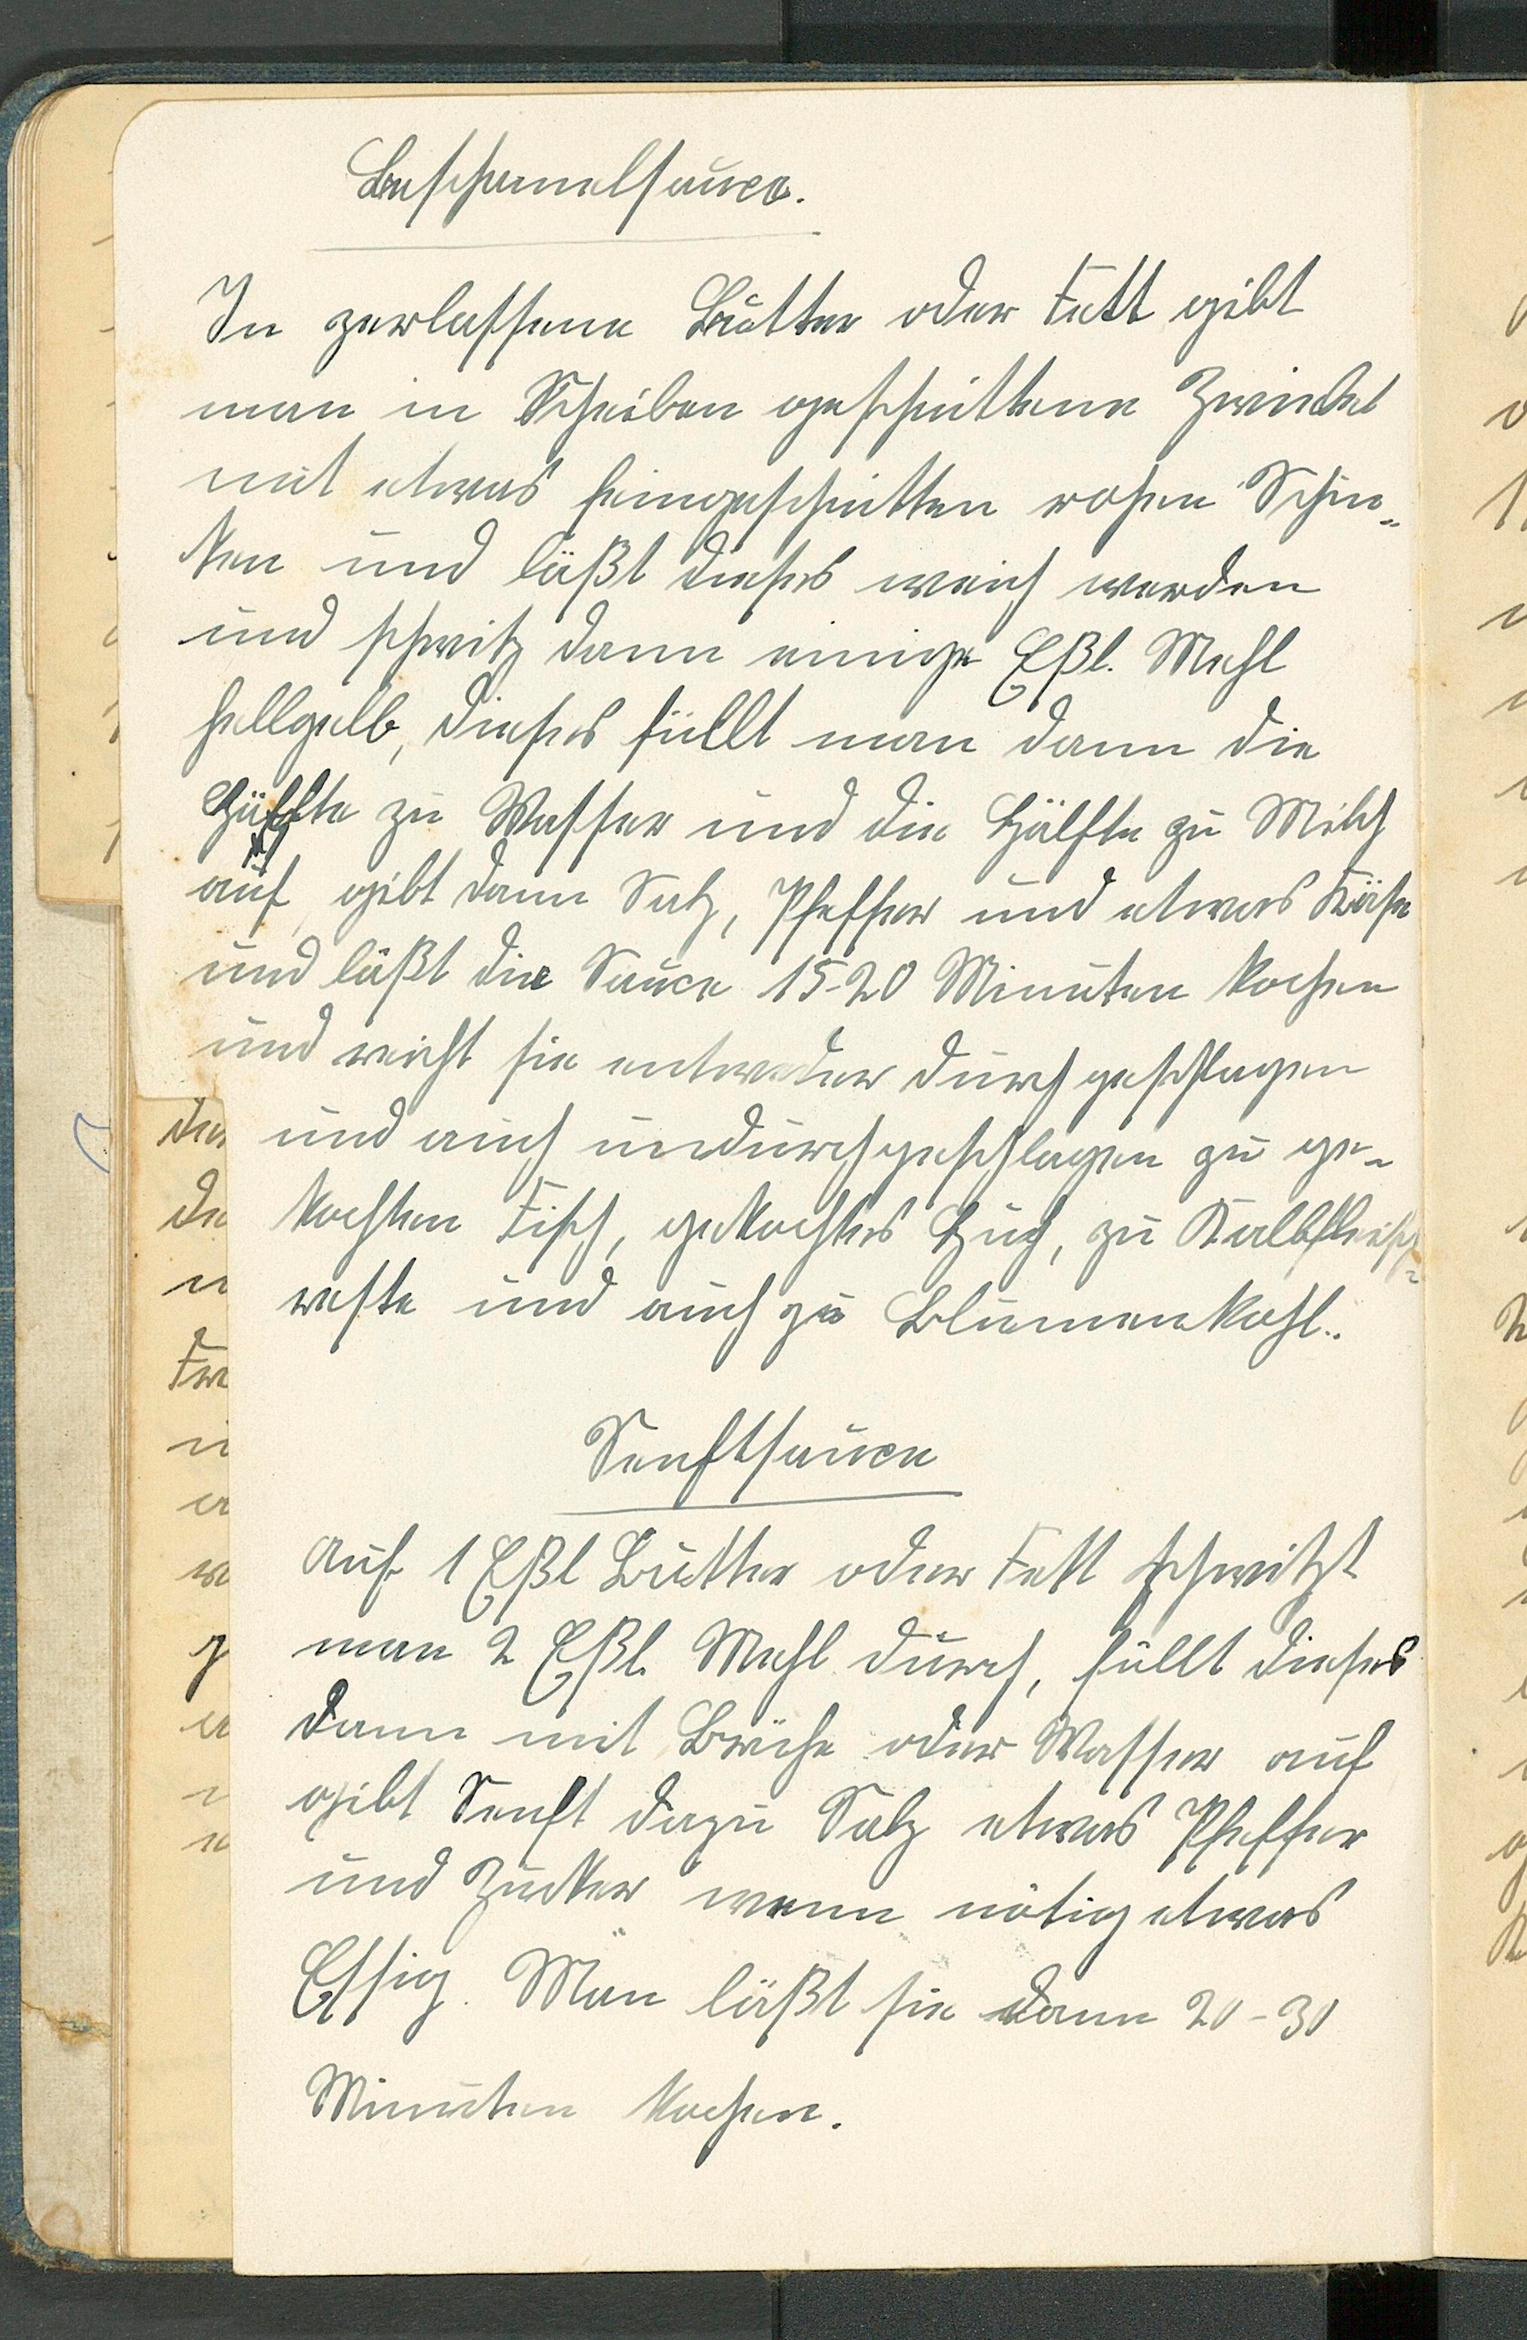 Beschamelsauce.
In zerlassene Butter oder Fett gibt
man in Scheiben geschnittene Zwiebel
mit etwas feingeschnitten rohen Schin-
ken und läßt dieses weich werden
und schwitz dann einige Eßl. Mehl
hellgelb, dieses füllt man dann die
Hälfte zu Wasser und die Hälfte zu Milch
auf, gibt dann Salz, Pfeffer und etwas Käse
und läßt die Sauce 15-20 Minuten kochen
und reicht sie entweder durchgeschlagen
und auch undurchgeschlagen zu ge-
kochten Fisch, gekochtes Huh, zu Kalbfleisch-
reste und auch zu Blumenkohl.
Senftsauce
Auf 1 Eßl Butter oder Fett schwitzt
man 2 Eßl. Mehl durch, füllt dieses
dann mit Brühe oder Wasser auf
gibt Senft dazu Salz etwas Pfeffer
und Zucker wenn nötig etwas
Essig. Man läßt sie dann 20-30
Minuten kochen.